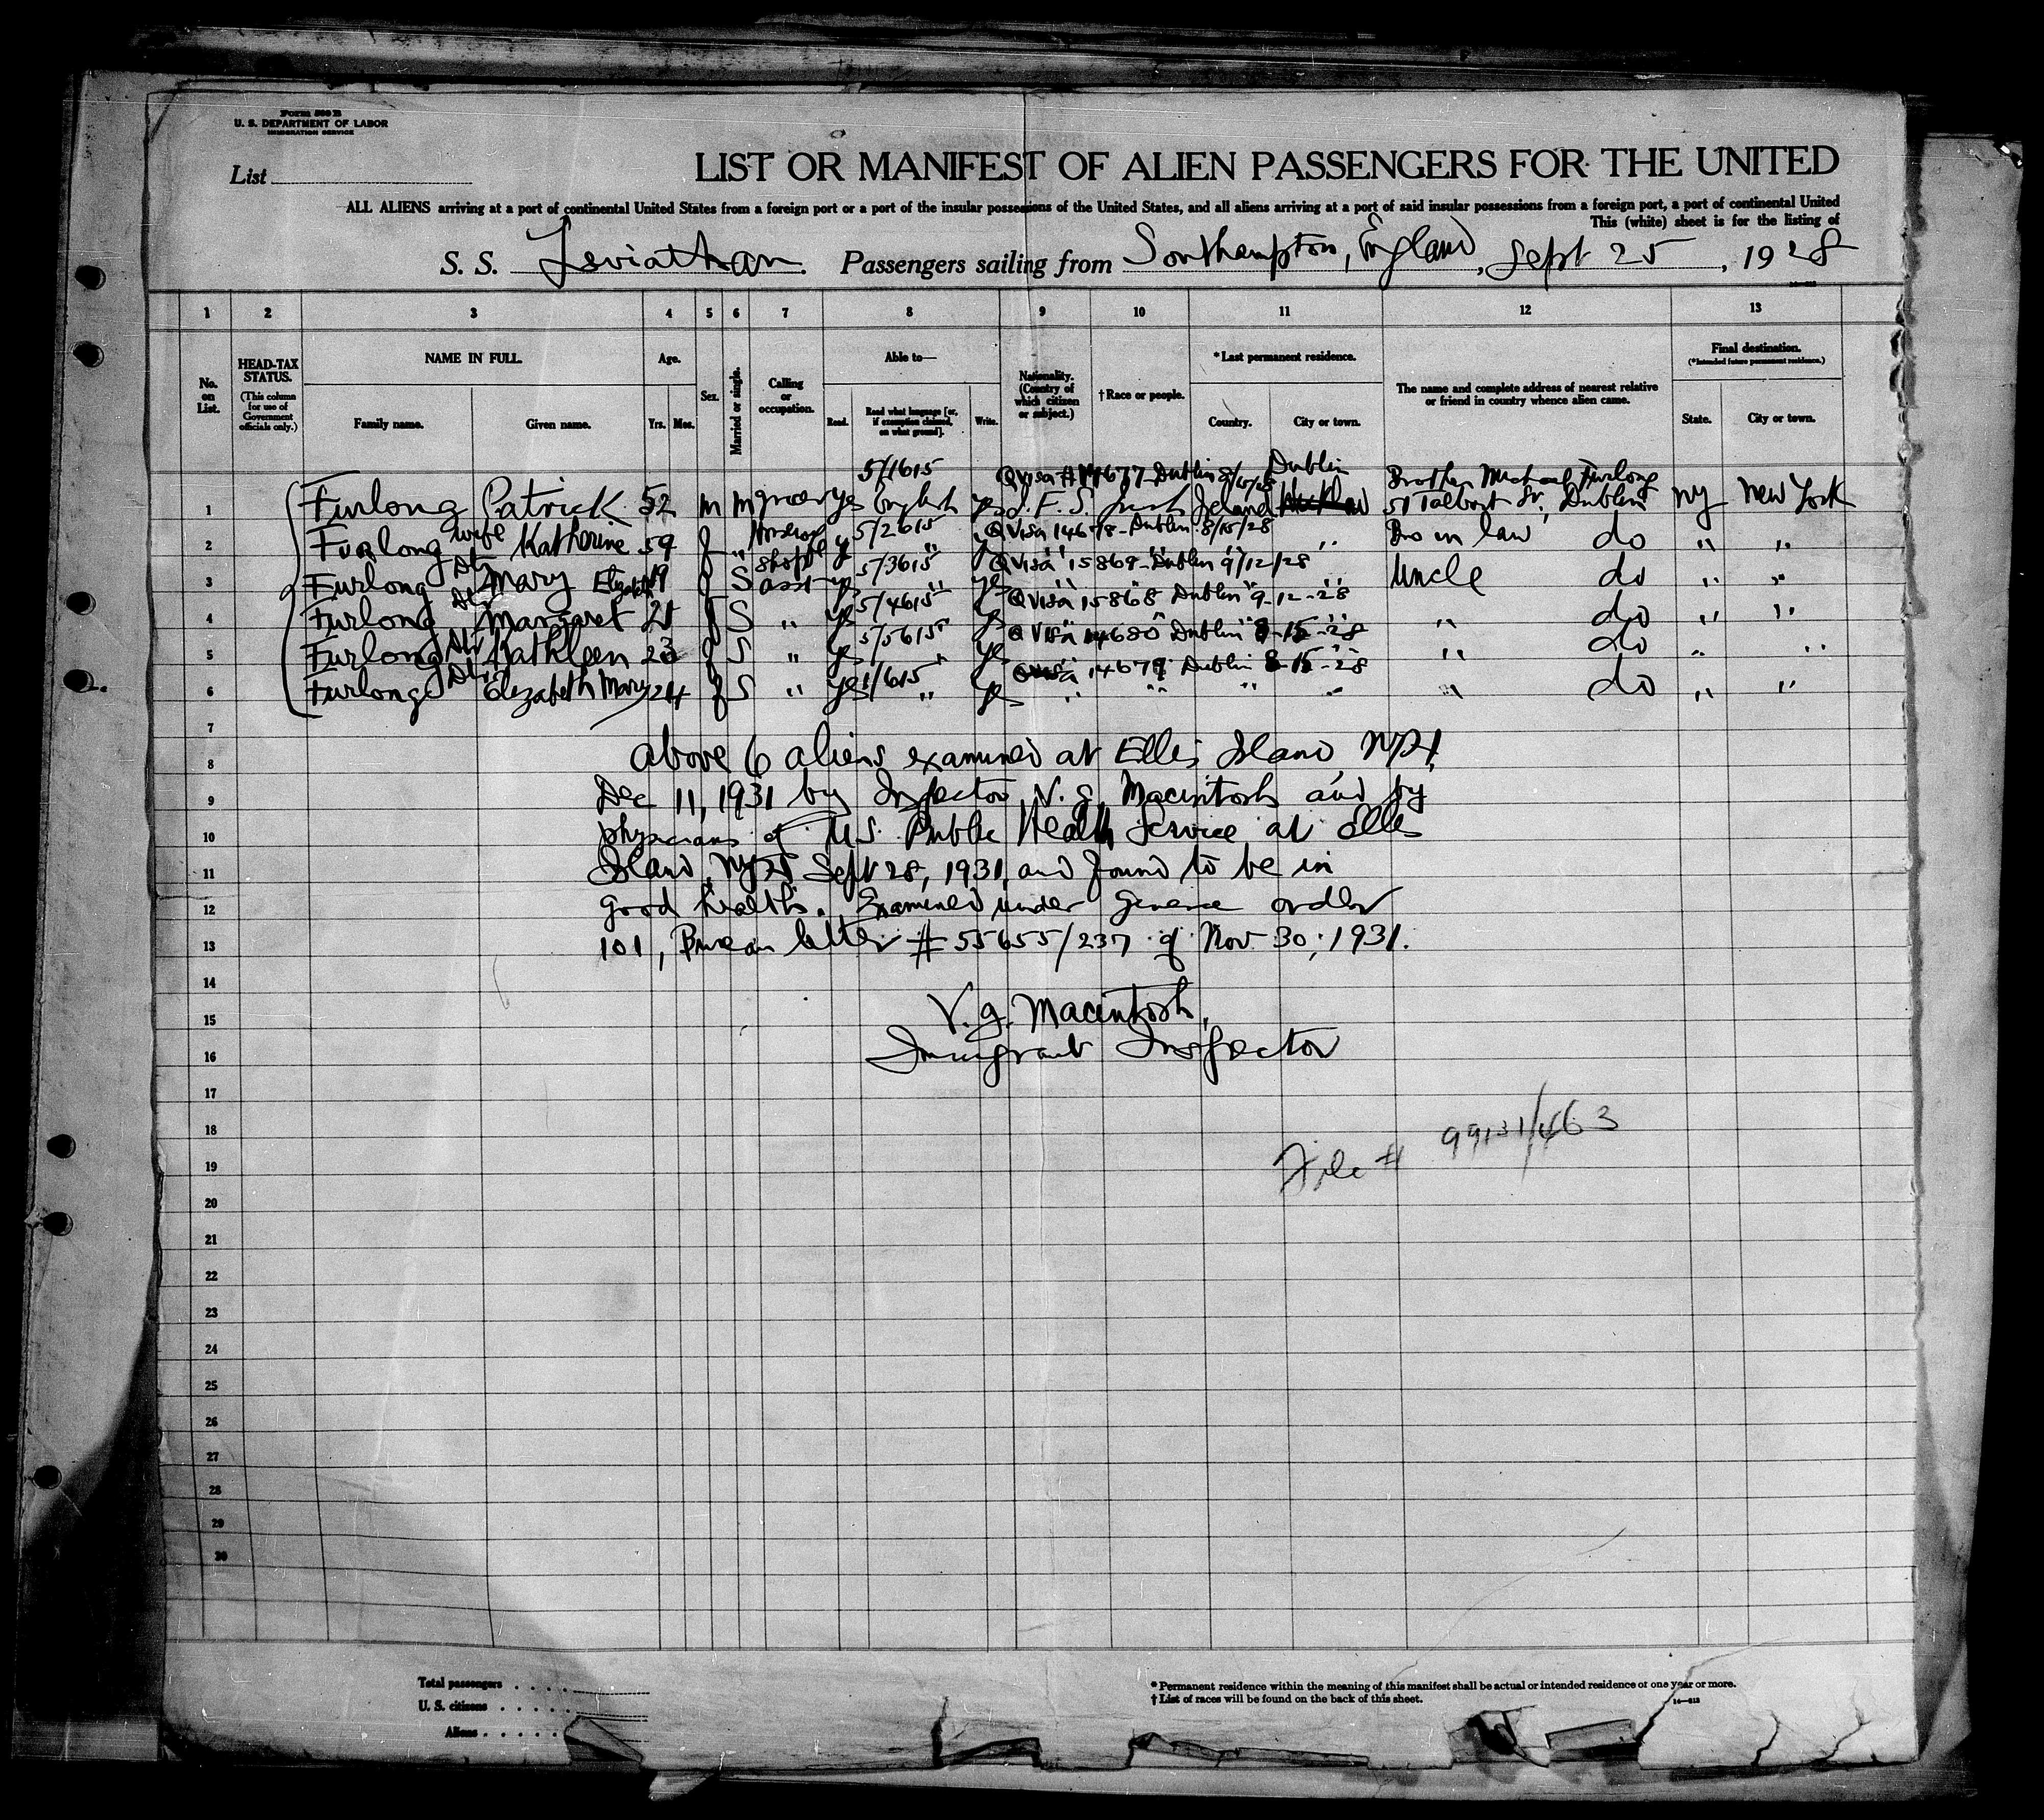 Form 500 B
U. S. DEPARTMENT OF LABOR
IMMIGRATION SERVICE
List
LIST OR MANIFEST OF ALIEN PASSENGERS FOR THE UNITED
ALL ALIENS arriving at a port of continental United States from a foreign port or a port of the insular possessions of the United States, and all aliens arriving at a port of said insular possessions from a foreign port, a port of continental United
This (white) sheet is for the listing of
S. S. Leviathan. Passengers sailing from Southampton, England, Sept 25, 1928
1 2 3 4 5 6 7 8 9 10 11 12 13
No. on List.
HEAD-TAX STATUS. (This column for use of Government officials only.)
NAME IN FULL. Family name. Given name.
Age. Yrs. Mos.
Sex.
Married or single.
Calling or occupation.
Able to— Read. Read what language [or, if exemption claimed, on what ground]. Write.
Nationality. (Country of which citizen or subject.)
† Race or people.
* Last permanent residence. Country. City or town.
The name and complete address of nearest relative or friend in country whence alien came.
Final destination. (*Intended future permanent residence.) State. City or town.
5/1615 QVisa #14677-Dublin Dublin Brother Michael Furlong
1 Furlong Patrick 52 m m grocer yes English yes I. F. S. Irish Ireland 51 Talbort St, Dublin NY New York
wife 5/2615 QVisa 14678-Dublin 8/15/28
2 Furlong Katherine 59 f " " Bro in law do " "
Dtr shop 5/3615 QVisa 15869-Dublin 9/12/28
3 Furlong Mary Elizabeth 19 f S asst yes " yes Uncle do " "
Dtr 5/4615 QVisa 15868 Dublin 9-12-28
4 Furlong Margaret 21 f S " yes yes " do " "
Dtr 5/5615 QVisa 14680 Dublin 8-15-28
5 Furlong Kathleen 23 f S " yes " yes " do " "
Dtr 1/615 QVisa 14679 Dublin 8-15-28
6 Furlong Elizabeth Mary 24 f S " yes " yes " " " " " do " "
7
8 above 6 aliens examined at Ellis Island NYH
9 Dec 11, 1931 by Inspector V. G. Macintosh and by
10 physicians of U.S. Public Health Service at Ellis
11 Island, NYH Sept 28, 1931, and found to be in
12 good health. Examined under General order
13 101, Bureau letter # 55655/237 of Nov 30, 1931.
14
15 V. G. Macintosh,
16 Immigrant Inspector
17
18
19 File # 99131/463
20
21
22
23
24
25
26
27
28
29
30
Total passengers
U. S. citizens
Aliens
* Permanent residence within the meaning of this manifest shall be actual or intended residence of one year or more.
† List of races will be found on the back of this sheet.